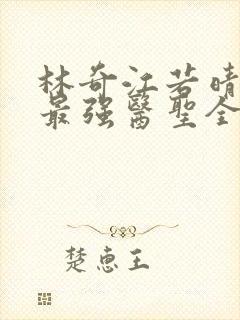 林奇江若晴
最强醫聖全
楚惠王